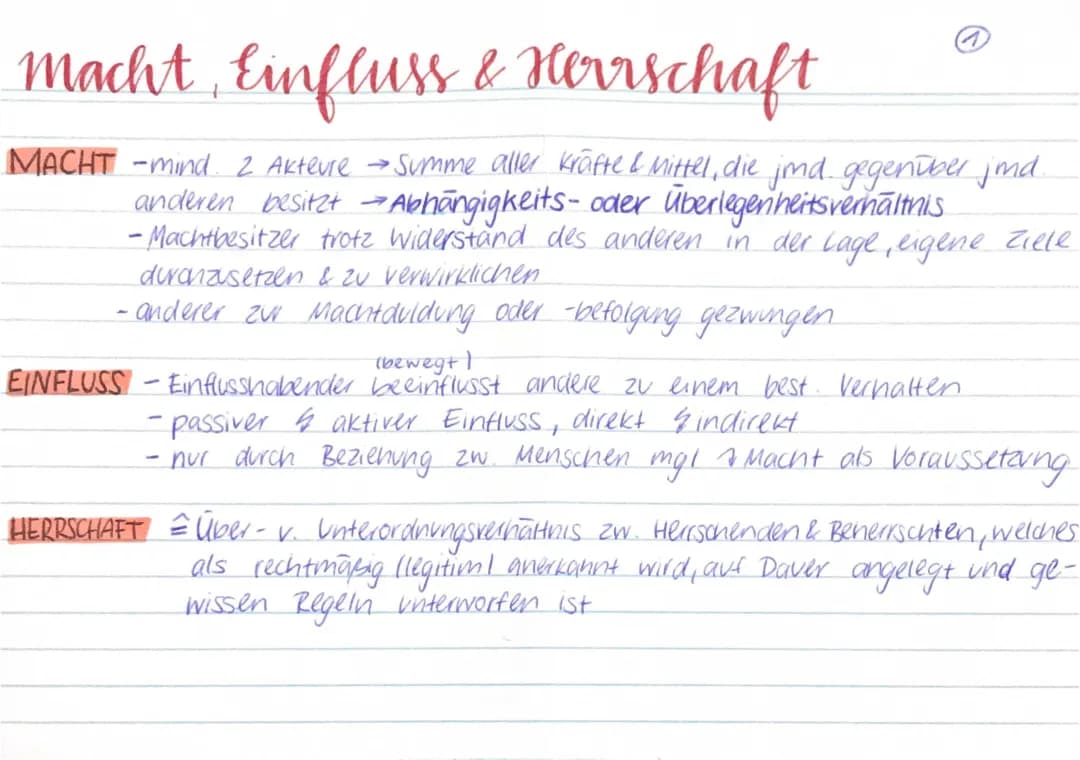 ①
Macht, Einfluss & Herrschaft
MACHT - mind. 2 Akteure → Summe aller Kräfte & Mittel, die jmd. gegenüber jmd.
anderen besitzt → Abhängigkeits- oder Überlegenheitsverhältnis
- Machtbesitzer trotz Widerstand des anderen in der Lage, eigene Ziele
durchzusetzen & zu verwirklichen
- anderer zur Machtduldung oder -befolgung gezwungen
(bewegt)
EINFLUSS - Einflusshabender beeinflusst andere zu einem best. Verhalten
- passiver & aktiver Einfluss, direkt & indirekt
- nur durch Beziehung zw. Menschen mgl Macht als Voraussetzung
HERRSCHAFT ≙ Über- u. Unterordnungsverhältnis zw. Herrschenden & Beherrschten, welches
als rechtmäßig (legitim) anerkannt wird, auf Dauer angelegt und ge-
wissen Regeln unterworfen ist